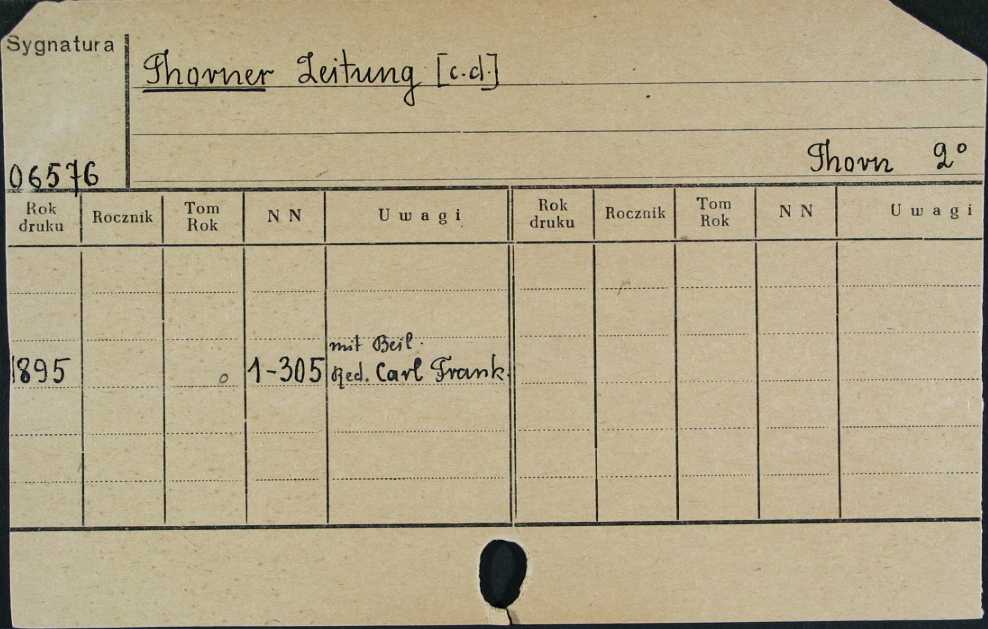 Sygnatura
Thorner Zeitung [c.d.]
Thorn 2°
06576
Rok druku Rocznik Tom Rok N N Uwagi Rok druku Rocznik Tom Rok N N Uwagi
mit Beil.
1895 1-305 Red. Carl Frank.